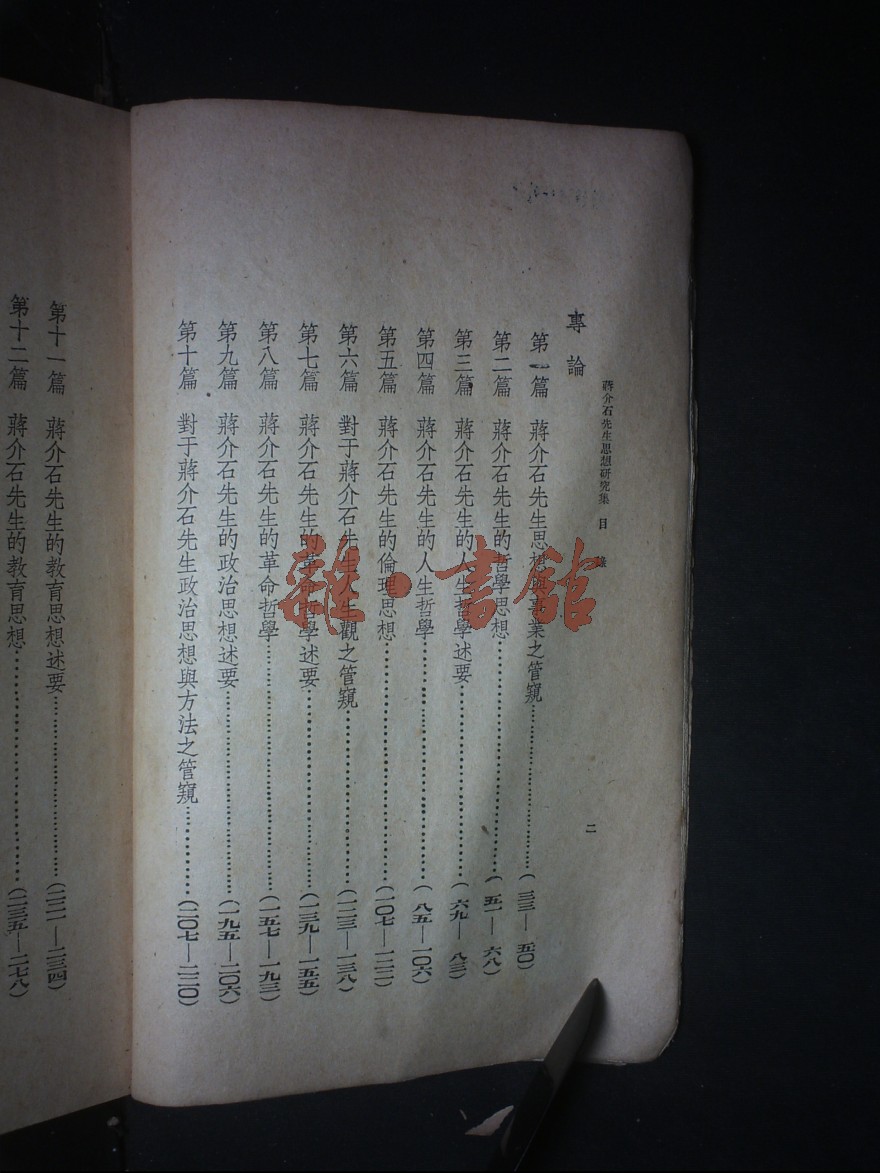 蔣介石先生思想研究集 目錄
二
專論
第一篇 蔣介石先生思想與事業之管窺……(三三—五〇)
第二篇 蔣介石先生的哲學思想……(五一—六八)
第三篇 蔣介石先生的人生哲學述要……(六九—八三)
第四篇 蔣介石先生的人生哲學……(八五—一〇六)
第五篇 蔣介石先生的倫理思想……(一〇七—一二二)
第六篇 對于蔣介石先生人生觀之管窺……(一二三—一三八)
第七篇 蔣介石先生的革命哲學述要……(一三九—一五五)
第八篇 蔣介石先生的革命哲學……(一五七—一九三)
第九篇 蔣介石先生的政治思想述要……(一九五—二〇六)
第十篇 對于蔣介石先生政治思想與方法之管窺……(二〇七—二二〇)
第十一篇 蔣介石先生的教育思想述要……(二二一—二三四)
第十二篇 蔣介石先生的教育思想……(二三五—二七八)
雜·書館